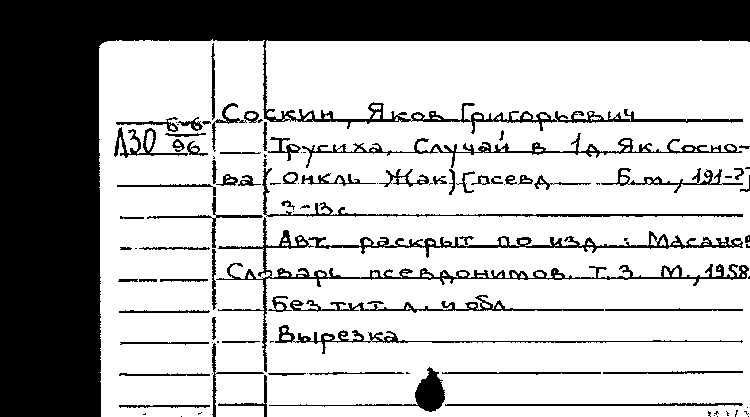 Соскин, Яков Григорьевич
Л30 Б-6
96
Трусиха. Случай в 1д. Як. Сосно-
ва (Онкль Жак) [псевд Б.м., 191-?]
3-13с.
Авт. раскрыт по изд.: Масанов
Словарь псевдонимов. Т.3. М., 1958.
Без тит. л. и обл.
Вырезка.